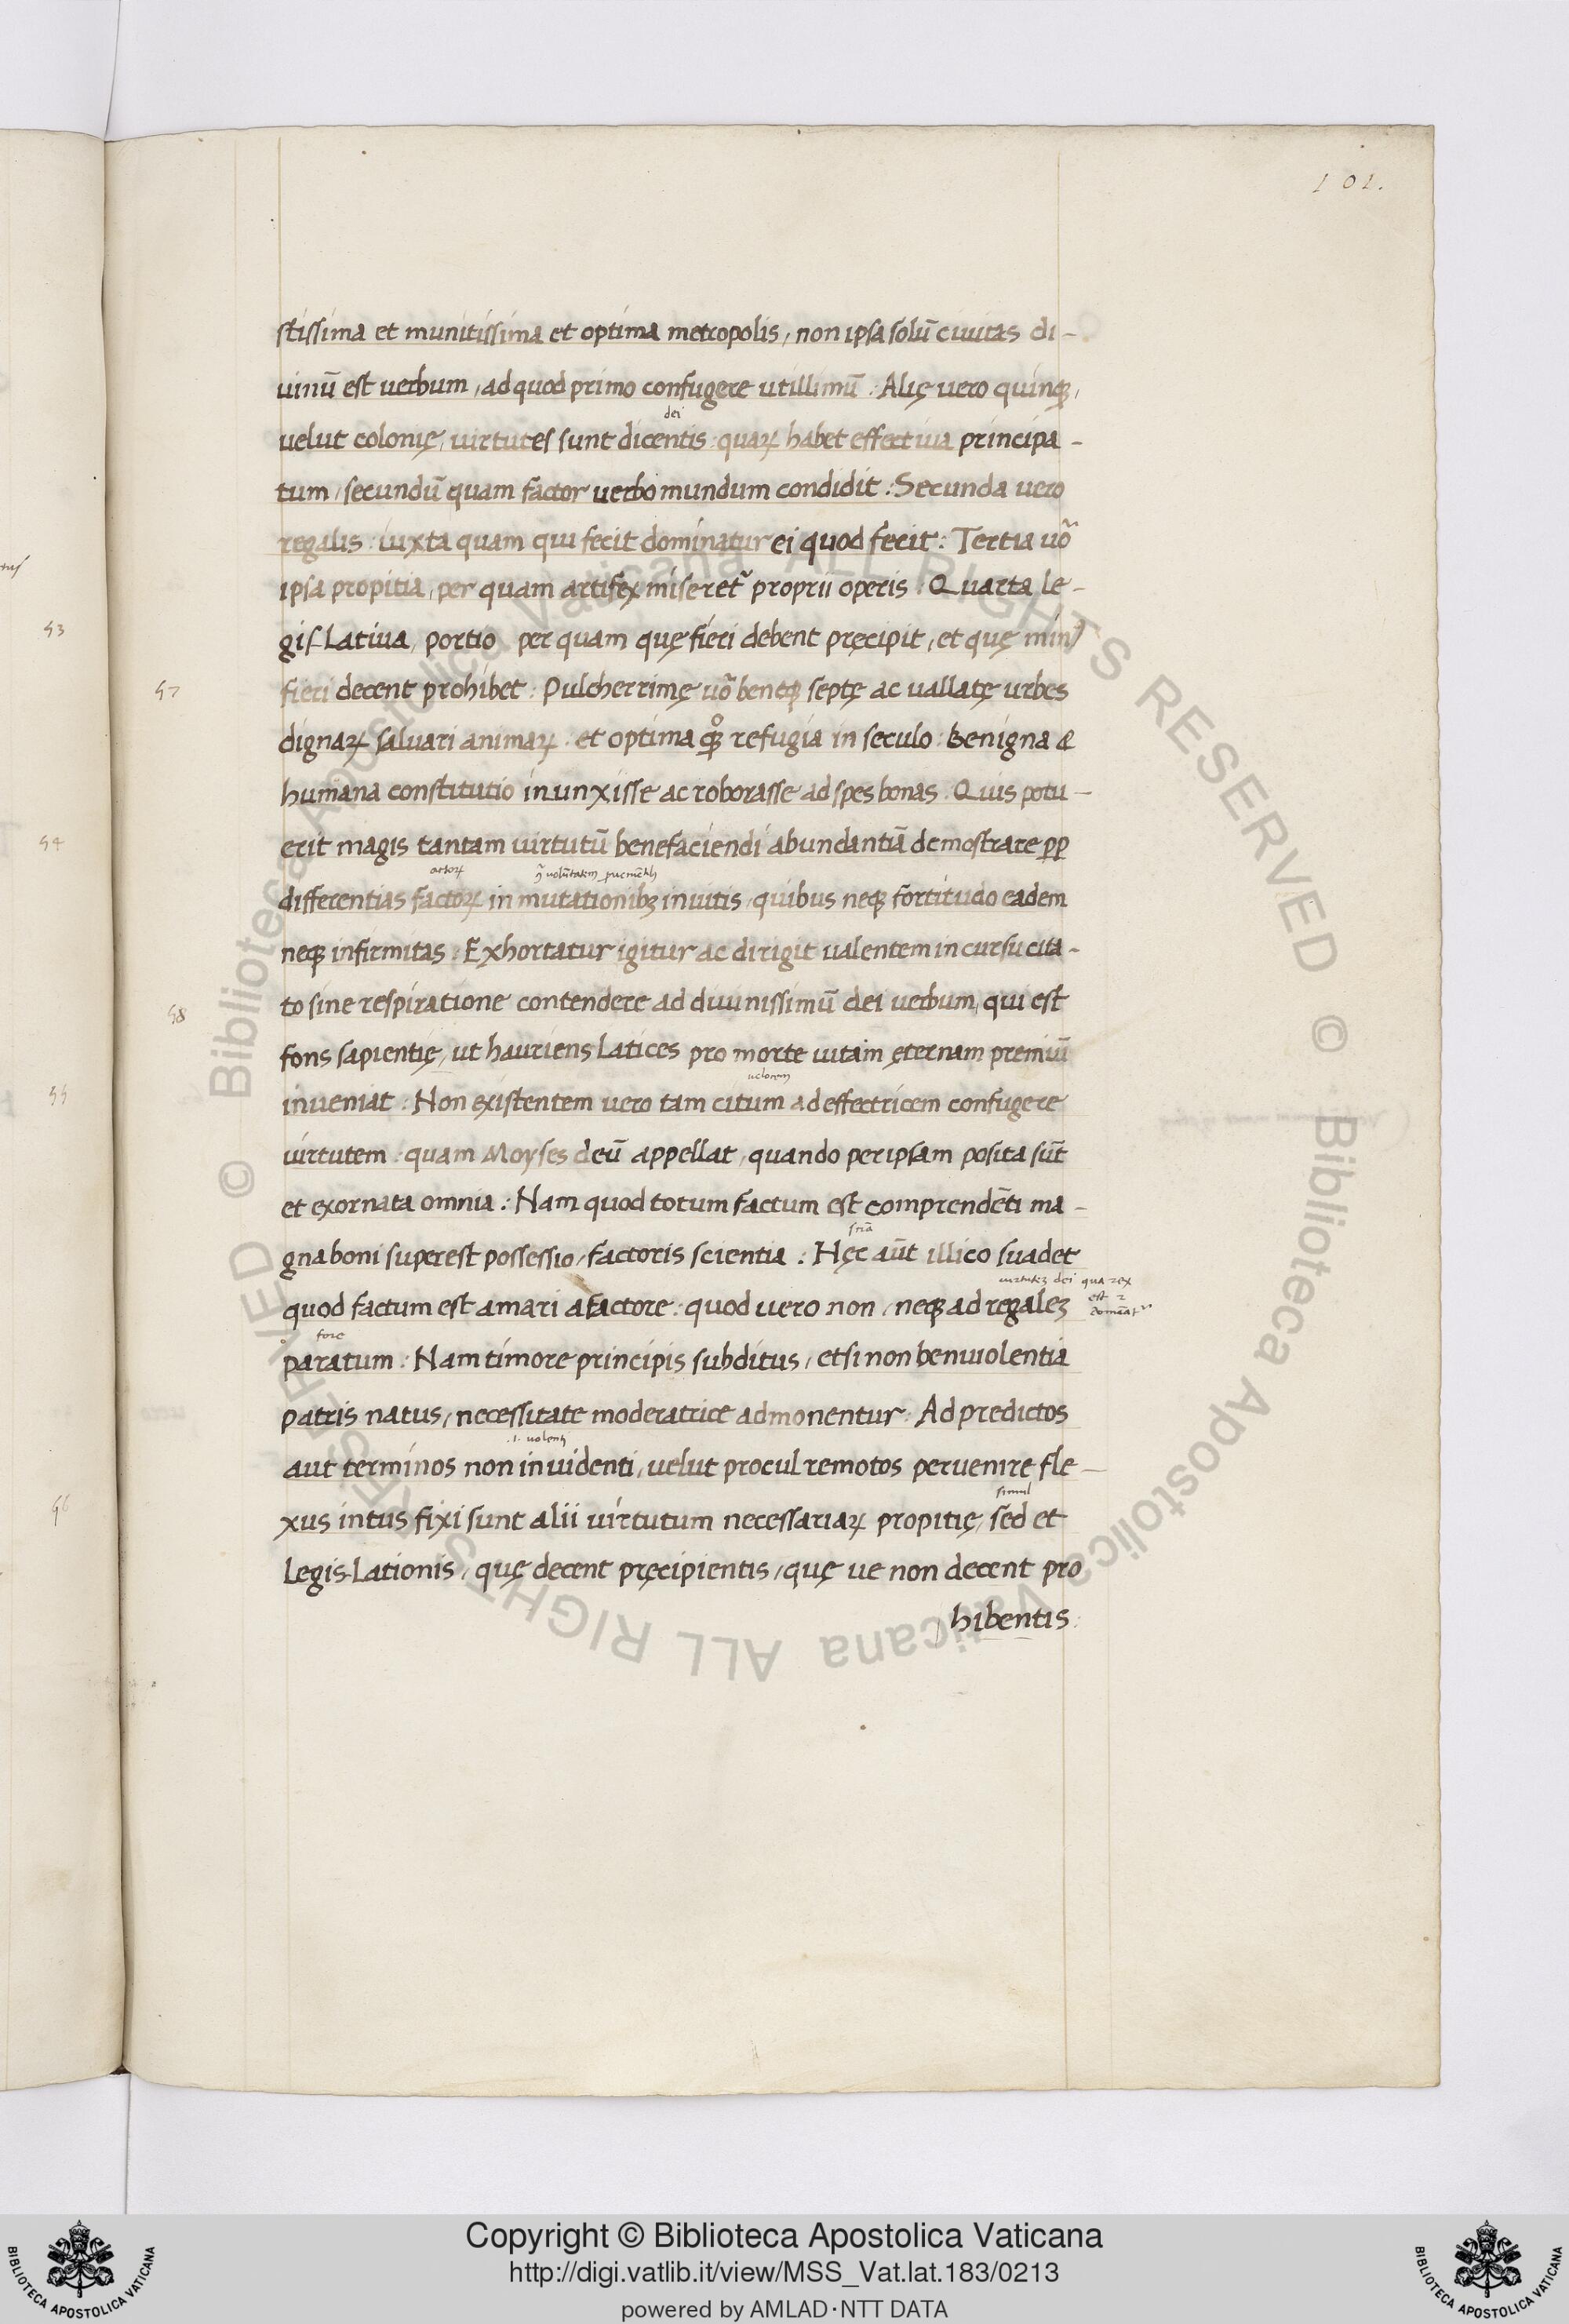 101.
stissima et munitissima et optima metropolis, non ipsa solũ ciuitas di-
uinũ est uerbum, ad quod primo confugere utillimũ : Alię uero quinqꝫ,
dei
uelut colonię, uirtutes sunt dicentis : quaꝝ habet effectiua principa-
tum, secundũ quam factor uerbo mundum condidit : Secunda uero
regalis : iuxta quam qui fecit dominatur ei quod fecit : Tertia uõ
ipsa propitia, per quam artifex miseret᷑ proprii operis : Quarta le-
53
gis-Latiua, portio per quam quę fieri debent pręcipit, et quę min9
57
fieri decent prohibet : Pulcherrimę uõ beneqꝫ septę ac uallatę urbes
dignaꝝ saluari animaꝝ : et optima refugia in seculo : Benigna &
humana constitutio inunxisse ac roborasse ad spes bonas. Quis potu-
54
erit magis tantam uirtutũ benefaciendi abundantiã demostrare ꝓꝑ
actoꝝ
differentias factoꝝ in mutationibꝫ inuitis, quibus neqꝫ fortitudo eadem
neqꝫ infirmitas : Exhortatur igitur ac dirigit ualentem in cursu cita-
58
to sine respiratione contendere ad diuinissimũ dei uerbum, qui est
fons sapientię, ut hauriens Latices pro morte uitam ęternam premiũ
55
uelocem
inueniat : Non existentem uero tam citum ad effectricem confugere
uirtutem : quam Moyses deũ appellat, quando per ipsam posita sũt
et exornata omnia : Nam quod totum factum est comprendẽti ma-
gna boni superest possessio, factoris scientia : Hęc aũt illico suadet
uirtutẽ dei qua rex
est
quod factum est amari a factore : quod uero non, neqꝫ ad regaleꝫ
fore
paratum : Nam timore principis subditus, et si non beniuolentia
patris natus, necessitate moderatrice admonentur : Ad predictos
aut terminos non inuidenti, uelut procul remotos peruenire fle-
simul
56
xus intus fixi sunt alii uirtutum necessariaꝝ propitię, sed et
Legis-Lationis, quę decent pręcipientis, quę ue non decent pro
hibentis
© Biblioteca Apostolica Vaticana ALL RIGHTS RESERVED © Biblioteca Apostolica Vaticana ALL RIGHTS RESERVED
Copyright © Biblioteca Apostolica Vaticana
http://digi.vatlib.it/view/MSS_Vat.lat.183/0213
powered by AMLAD·NTT DATA
BIBLIOTECA APOSTOLICA VATICANA
BIBLIOTECA APOSTOLICA VATICANA